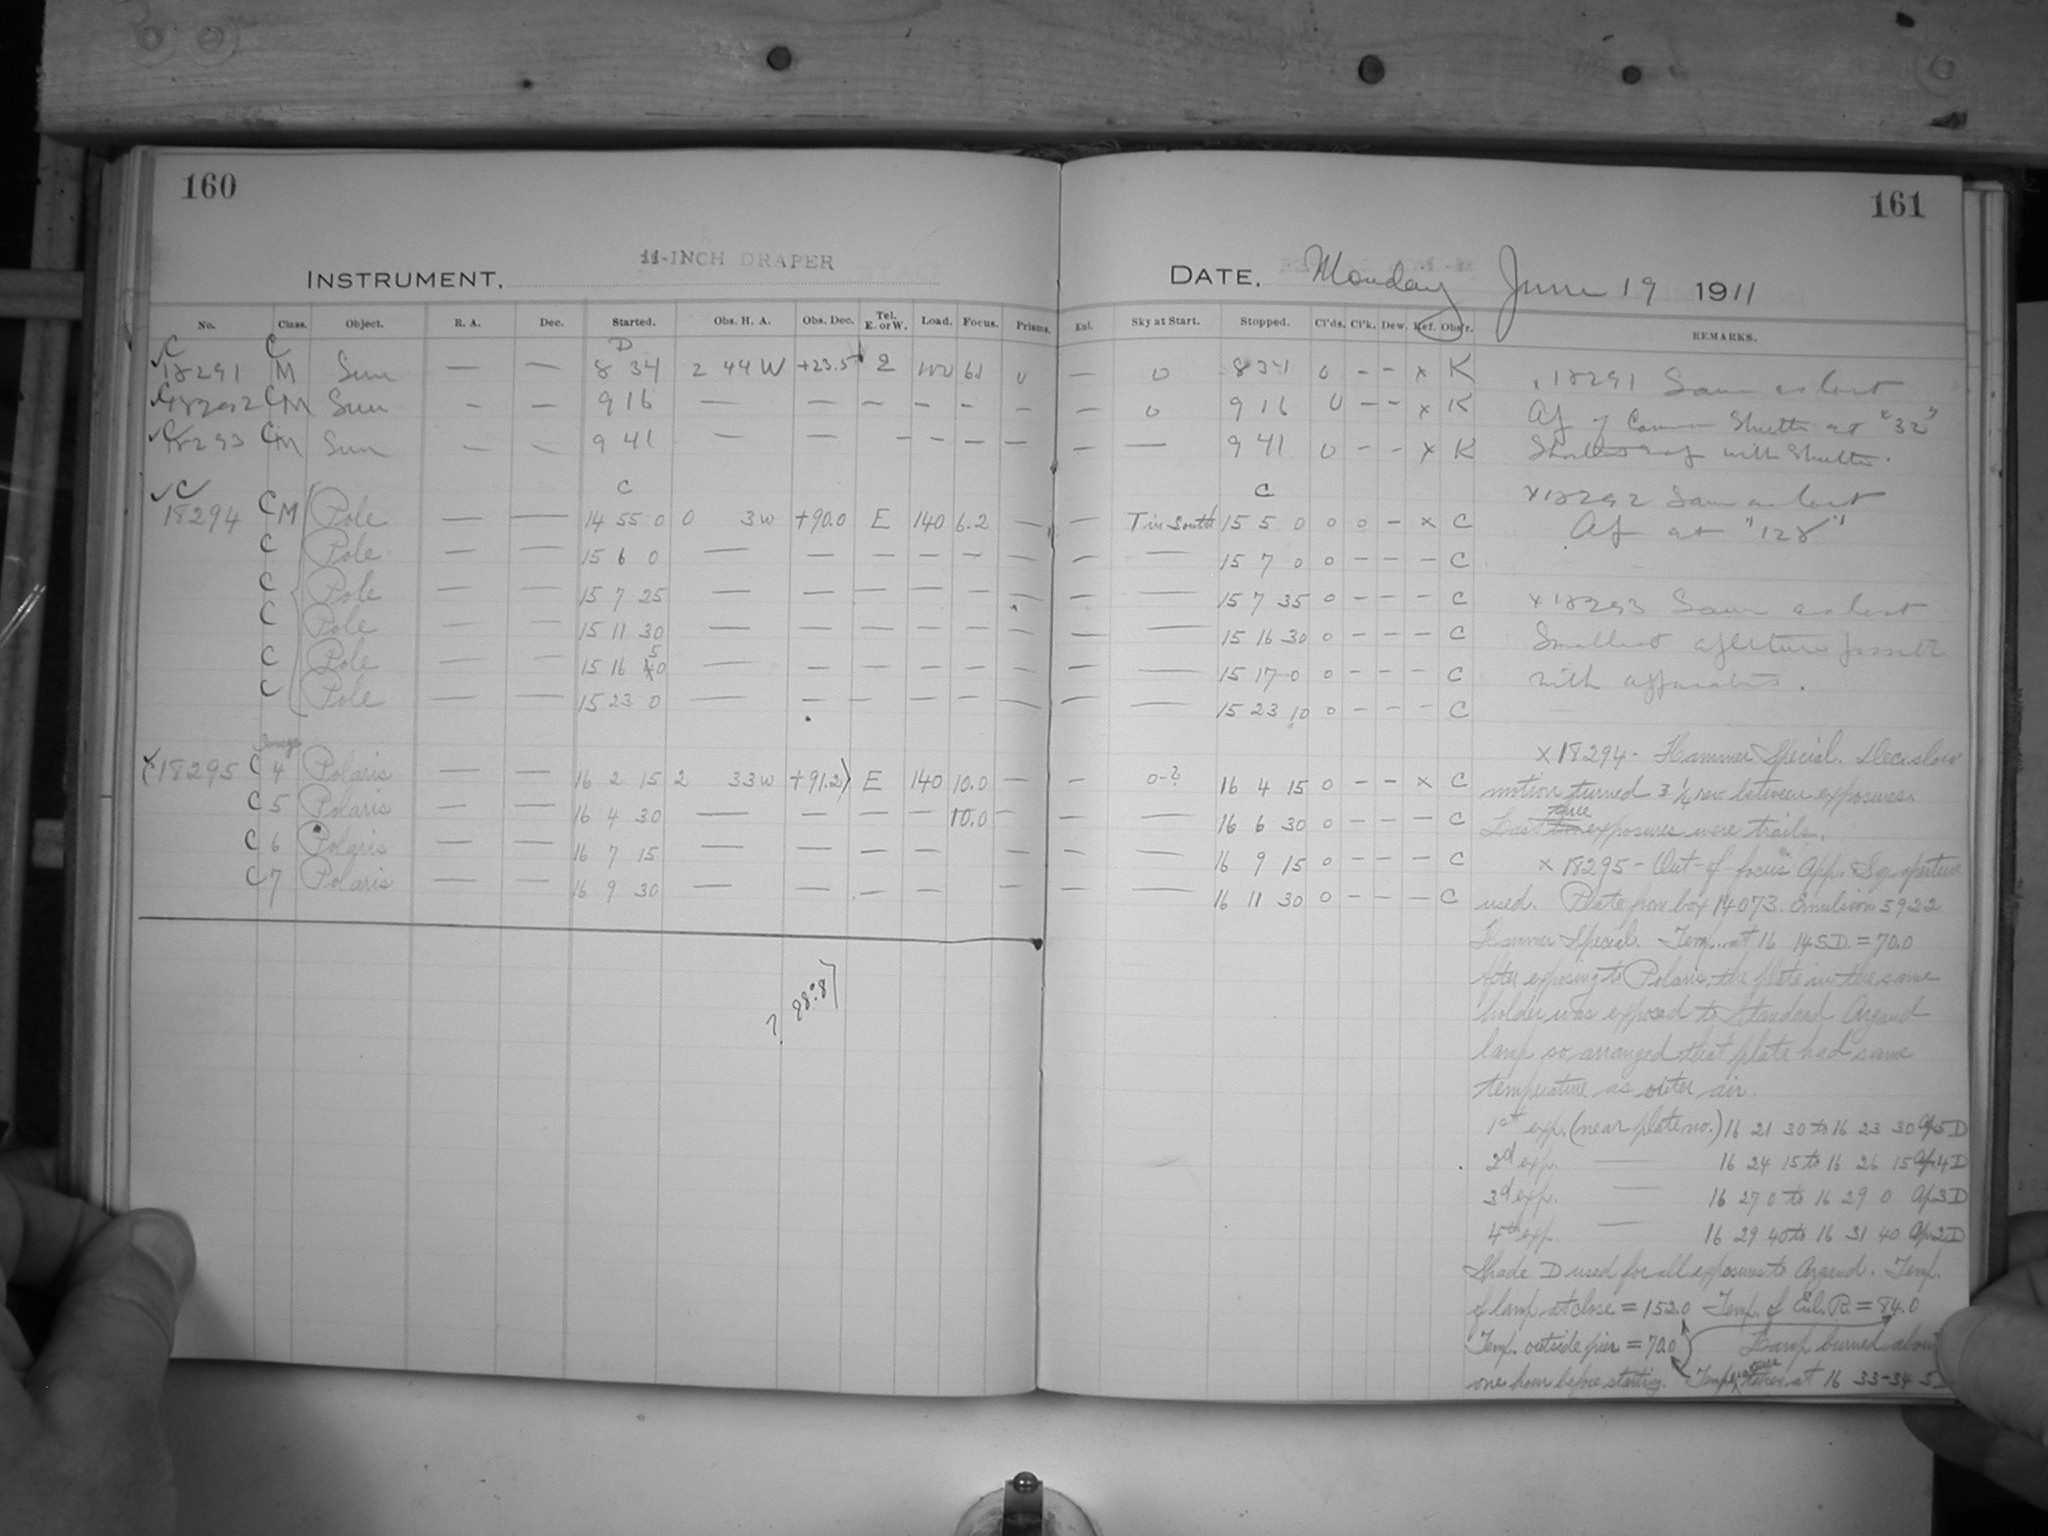 160
11-INCH DRAPER
INSTRUMENT,
No. Class. Object. R. A. Dec. Started. Obs. H. A. Obs. Dec. Tel. E. or W. Load. Focus. Prisms.
C C D
18291 M Sun — — 8 34 2 44 W +23.5 E 100 61 0
18292 C M Sun — — 9 16 — — — — — —
18293 C M Sun — — 9 41 — — — — — —
C C
18294 C M Pole — — 14 55 0 0 3 W +90.0 E 140 6.2 —
C Pole — — 15 6 0 — — — — — —
C Pole — — 15 7 25 — — — — — —
C Pole — — 15 11 30 — — — — — —
C Pole — — 15 16 50 — — — — — —
C Pole — — 15 23 0 — — — — — —
18295 C 4 Polaris — — 16 2 15 2 33 W +91.2) E 140 10.0 —
C 5 Polaris — — 16 4 30 — — — — 10.0 —
C 6 Polaris — — 16 7 15 — — — — — —
C 7 Polaris — — 16 9 30 — — — — — —
? 88°.8)
161
DATE, Monday June 19 1911
Enl. Sky at Start. Stopped. Cl'ds. Cl'k. Dew. Ref. Obs'r. REMARKS.
— 0 8 34 0 - - x K
— 0 9 16 0 - - x K
— — 9 41 0 - - x K
C
— T in South 15 5 0 0 0 - x C
— — 15 7 0 0 - - - C
— — 15 7 35 0 - - - C
— — 15 16 30 0 - - - C
— — 15 17 0 0 - - - C
— — 15 23 10 0 - - - C
— 0-2 16 4 15 0 - - x C
— — 16 6 30 0 - - - C
— — 16 9 15 0 - - - C
— — 16 11 30 0 - - - C
x 18291 Same as last
Ap of Camera Shutter at "32"
with Shutter.
x 18292 Same as last
Ap at "128"
x 18293 Same as last
Smallest aperture possible
with apparatus.
x 18294 - Hammer Special. Dec. slow
motion turned 3 1/4 rev between exposures.
Last three exposures were trails.
x 18295 - Out-of-focus App. Sq. aperture
used. Plate from box 14073. Emulsion 5922
Hammer Special. Temp. at 16 14 5 D. = 70.0
After exposing to Polaris, the plate in the same
holder was exposed to Standard Argand
lamp so arranged that plate had same
temperature as outer air.
1st exp. (near plate no.) 16 21 30 to 16 23 30 Ap 5 D
2d exp. — 16 24 15 to 16 26 15 Ap 4 D
3d exp. — 16 27 0 to 16 29 0 Ap 3 D
4th exp. — 16 29 40 to 16 31 40 Ap 2 D
Shade D used for all exposures to Argand. Temp.
of lamp at close = 152.0 Temp. of Enl. R. = 84.0
Temp. outside pier = 70.0 Lamp burned about
one hour before starting. Temps were taken at 16 33-34 5